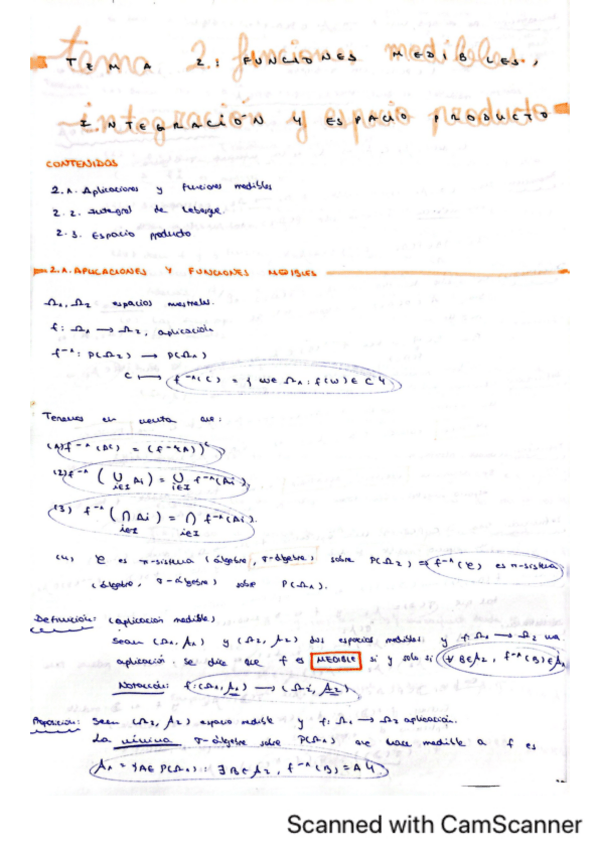 TEMA 2: FUNCIONES MEDIBLES,
INTEGRACIÓN Y ESPACIO PRODUCTO
CONTENIDOS
2.1. Aplicaciones y funciones medibles
2.2. Integral de Lebesgue
2.3. Espacio producto
2.1. APLICACIONES Y FUNCIONES MEDIBLES
Ω₁, Ω₂ espacios muestrales.
f: Ω₁ → Ω₂, aplicación.
f⁻¹: P(Ω₂) → P(Ω₁)
C ↦ f⁻¹(C) = { ω ∈ Ω₁ : f(ω) ∈ C }
Tenemos en cuenta que:
(1) f⁻¹(Aᶜ) = (f⁻¹(A))ᶜ
(2) f⁻¹(⋃ Ai) = ⋃ f⁻¹(Ai)
i∈I i∈I
(3) f⁻¹(⋂ Ai) = ⋂ f⁻¹(Ai).
i∈I i∈I
(4) C es π-sistema (álgebra, σ-álgebra) sobre P(Ω₂) ⇒ f⁻¹(C) es π-sistema
(álgebra, σ-álgebra) sobre P(Ω₁).
Definición: (aplicación medible).
Sean (Ω₁, A₁) y (Ω₂, A₂) dos espacios medibles y f: Ω₁ → Ω₂ una
aplicación. Se dice que f es MEDIBLE si y solo si ∀ B ∈ A₂, f⁻¹(B) ∈ A₁
Notación: f: (Ω₁, A₁) → (Ω₂, A₂)
Proposición: Sean (Ω₂, A₂) espacio medible y f: Ω₁ → Ω₂ aplicación.
La mínima σ-álgebra sobre P(Ω₁) que hace medible a f es
A₁ = {A ∈ P(Ω₁) : ∃ B ∈ A₂, f⁻¹(B) = A}.
Scanned with CamScanner